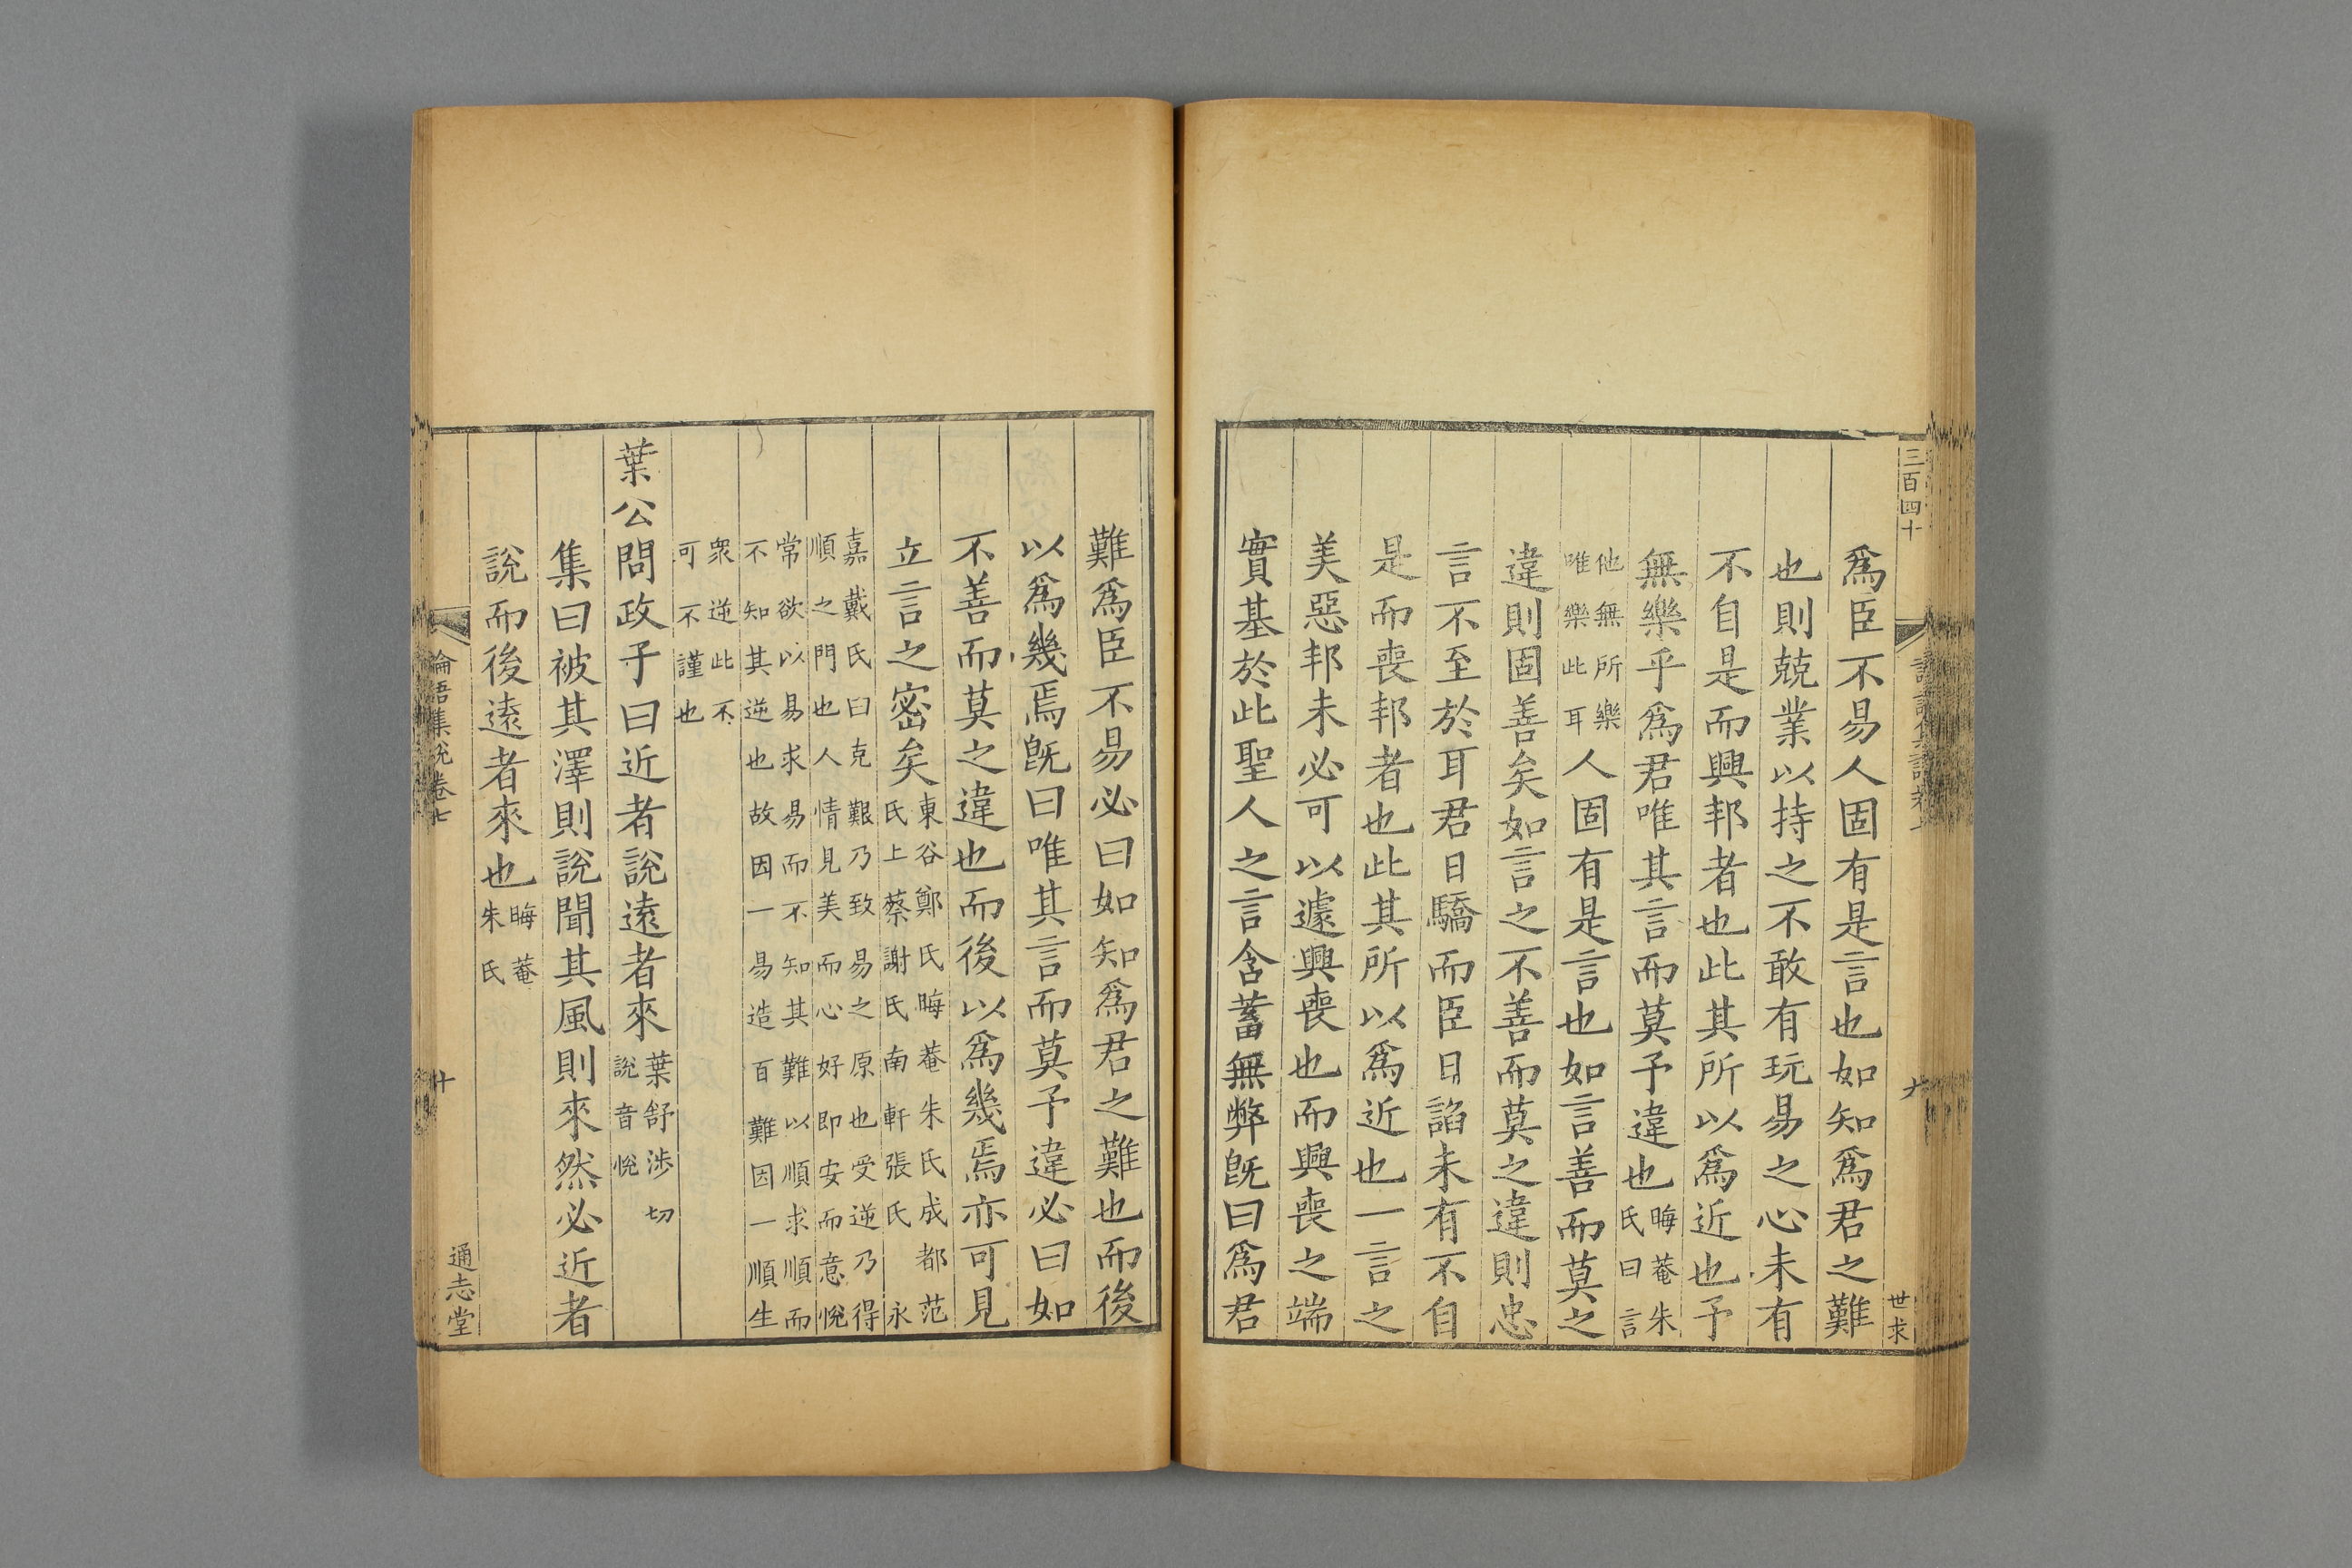 三百四十
世求
爲臣不易人固有是言也如知爲君之難
也則兢業以持之不敢有玩易之心未有
不自是而興邦者也此其所以爲近也予
無樂乎爲君唯其言而莫予違也晦菴朱氏曰言
他無所樂唯樂此耳人固有是言也如言善而莫之
違則固善矣如言之不善而莫之違則忠
言不至於耳君日驕而臣日諂未有不自
是而喪邦者也此其所以爲近也一言之
美惡邦未必可以遽興喪也而興喪之端
實基於此聖人之言含蓄無弊旣曰爲君
難爲臣不易必曰如知爲君之難也而後
以爲幾焉旣曰唯其言而莫予違必曰如
不善而莫之違也而後以爲幾焉亦可見
立言之密矣東谷鄭氏晦菴朱氏成都范氏上蔡謝氏南軒張氏永
嘉戴氏曰克艱乃致易之原也受逆乃得
順之門也人情見美而心好即安而意悅
常欲以易求易而不知其難以順求順而
不知其逆也故因一易造百難因一順生
衆逆此不
可不謹也
葉公問政子曰近者說遠者來葉舒涉切說音悅
集曰被其澤則說聞其風則來然必近者
說而後遠者來也晦菴朱氏
論語集說卷七
十
通志堂